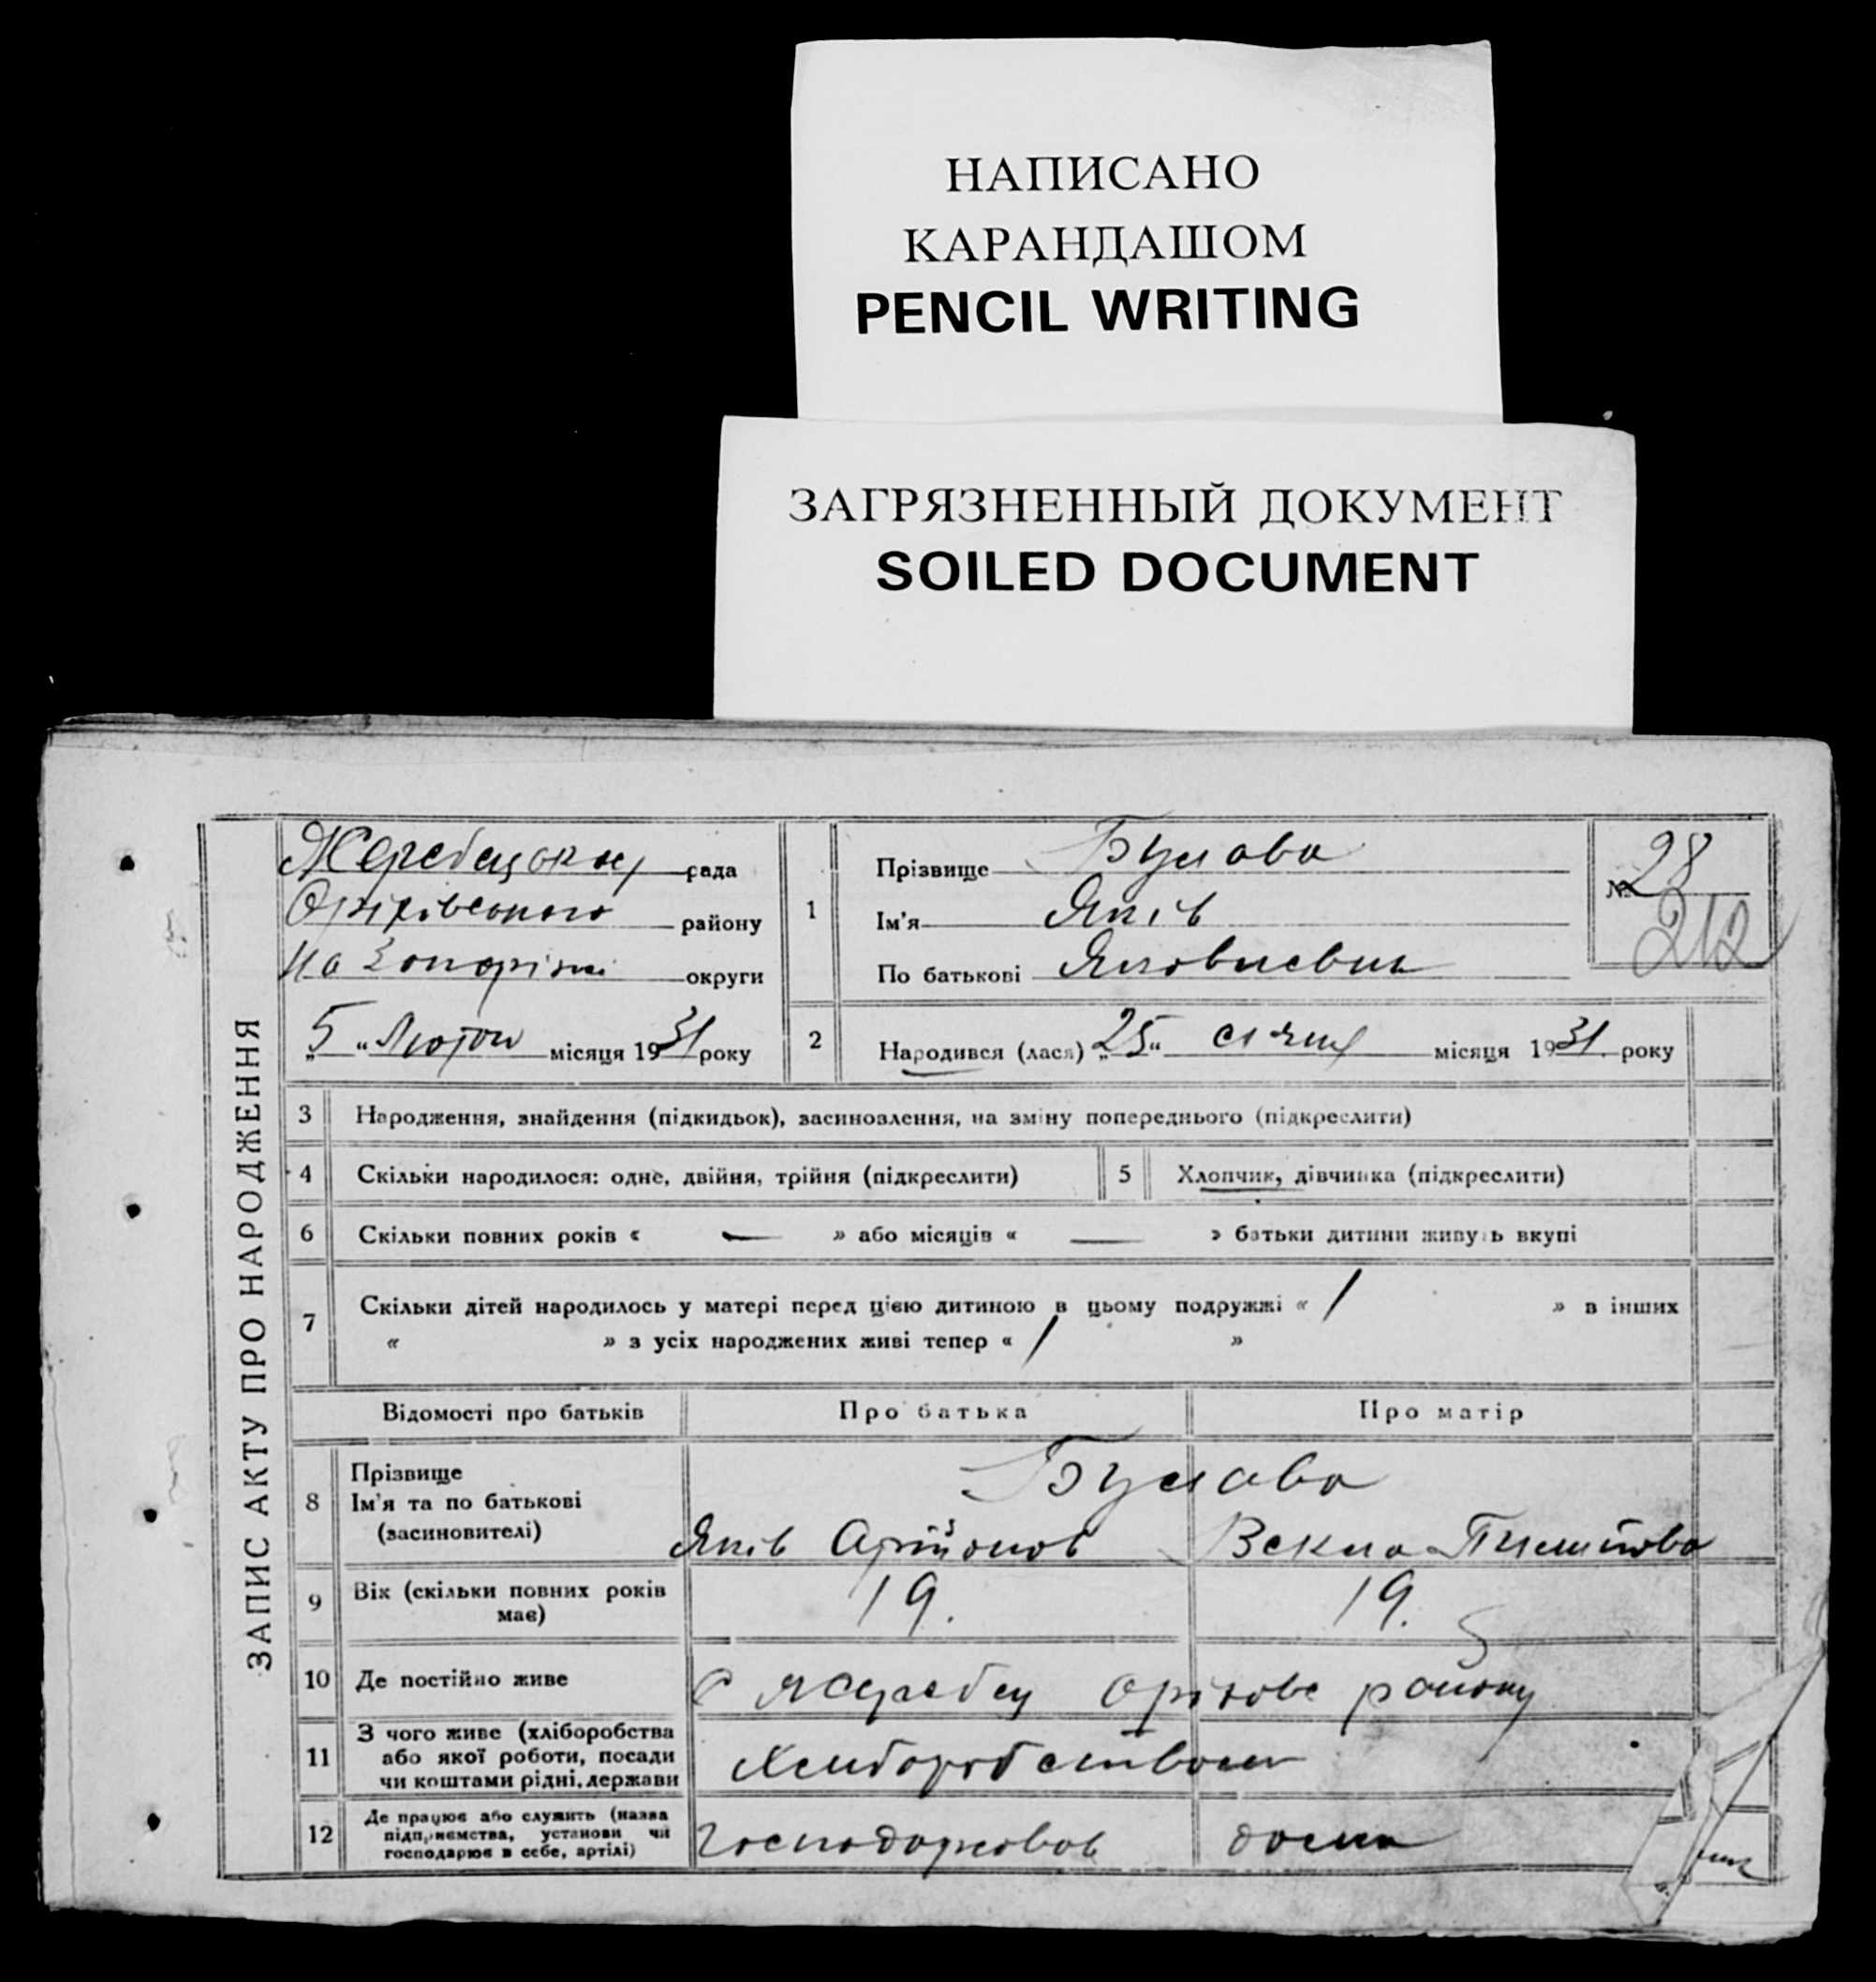 НАПИСАНО
КАРАНДАШОМ
PENCIL WRITING
ЗАГРЯЗНЕННЫЙ ДОКУМЕНТ
SOILED DOCUMENT
ЗАПИС АКТУ ПРО НАРОДЖЕННЯ
рада
району
округи
„5“ місяця 1931 року
1
Прізвище Булава
Ім'я Яків
По батькові Яковлевич
№ 28
212
2 Народився (лася) „25“ січня місяця 1931 року
3 Народження, знайдення (підкидьок), засиновлення, на зміну попереднього (підкреслити)
4 Скільки народилося: одне, двійня, трійня (підкреслити)
5 Хлопчик, дівчинка (підкреслити)
6 Скільки повних років « — » або місяців « — » батьки дитини живуть вкупі
7 Скільки дітей народилось у матері перед цією дитиною в цьому подружжі « 1 » в інших
« » з усіх народжених живі тепер « 1 »
Відомості про батьків Про батька Про матір
8 Прізвище
Ім'я та по батькові
(засиновителі)
Булава
Яків Векла
9 Вік (скільки повних років
має)
19. 19.
10 Де постійно живе
С Жеребец Оріхове району
11 З чого живе (хліборобства
або якої роботи, посади
чи коштами рідні, держави
Хлиборобством
12 Де працює або служить (назва
підприємства, установи чи
господарює в себе, артілі)
дома